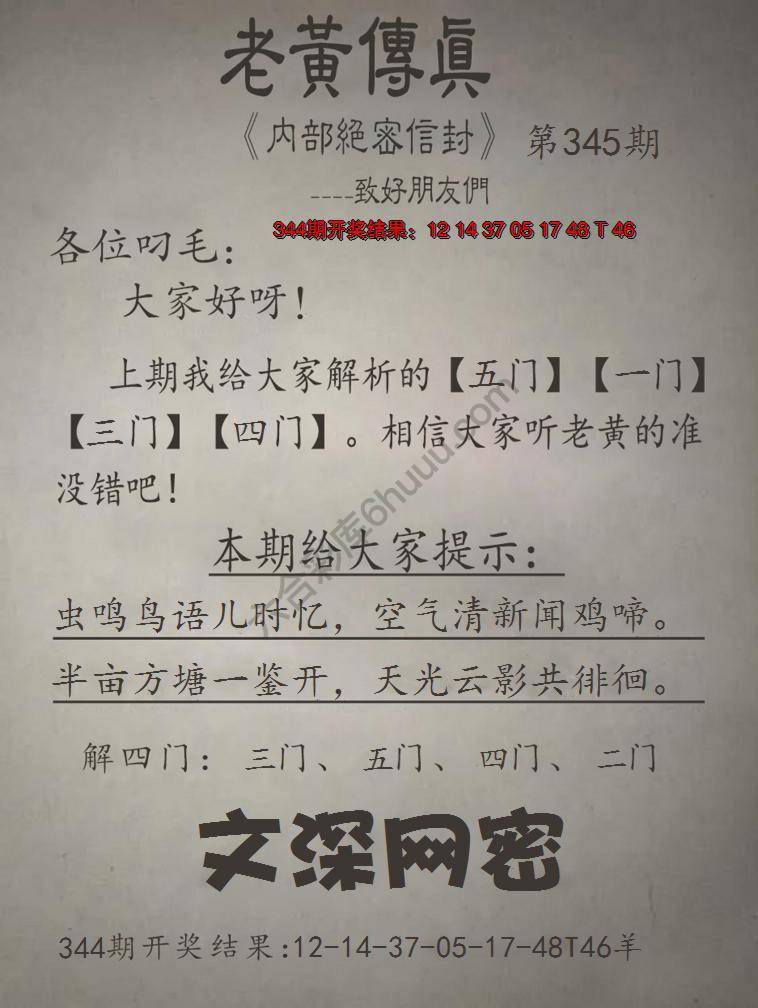 老黃傳眞
《内部絕密信封》 第345期
----致好朋友們
344期开奖结果：12 14 37 05 17 48 T 46
各位叼毛：
大家好呀！
上期我给大家解析的【五门】【一门】
【三门】【四门】。相信大家听老黄的准
没错吧！
本期给大家提示：
虫鸣鸟语儿时忆，空气清新闻鸡啼。
半亩方塘一鉴开，天光云影共徘徊。
解四门：三门、五门、四门、二门
文深网密
344期开奖结果:12-14-37-05-17-48T46羊
六合彩库6huuu.com